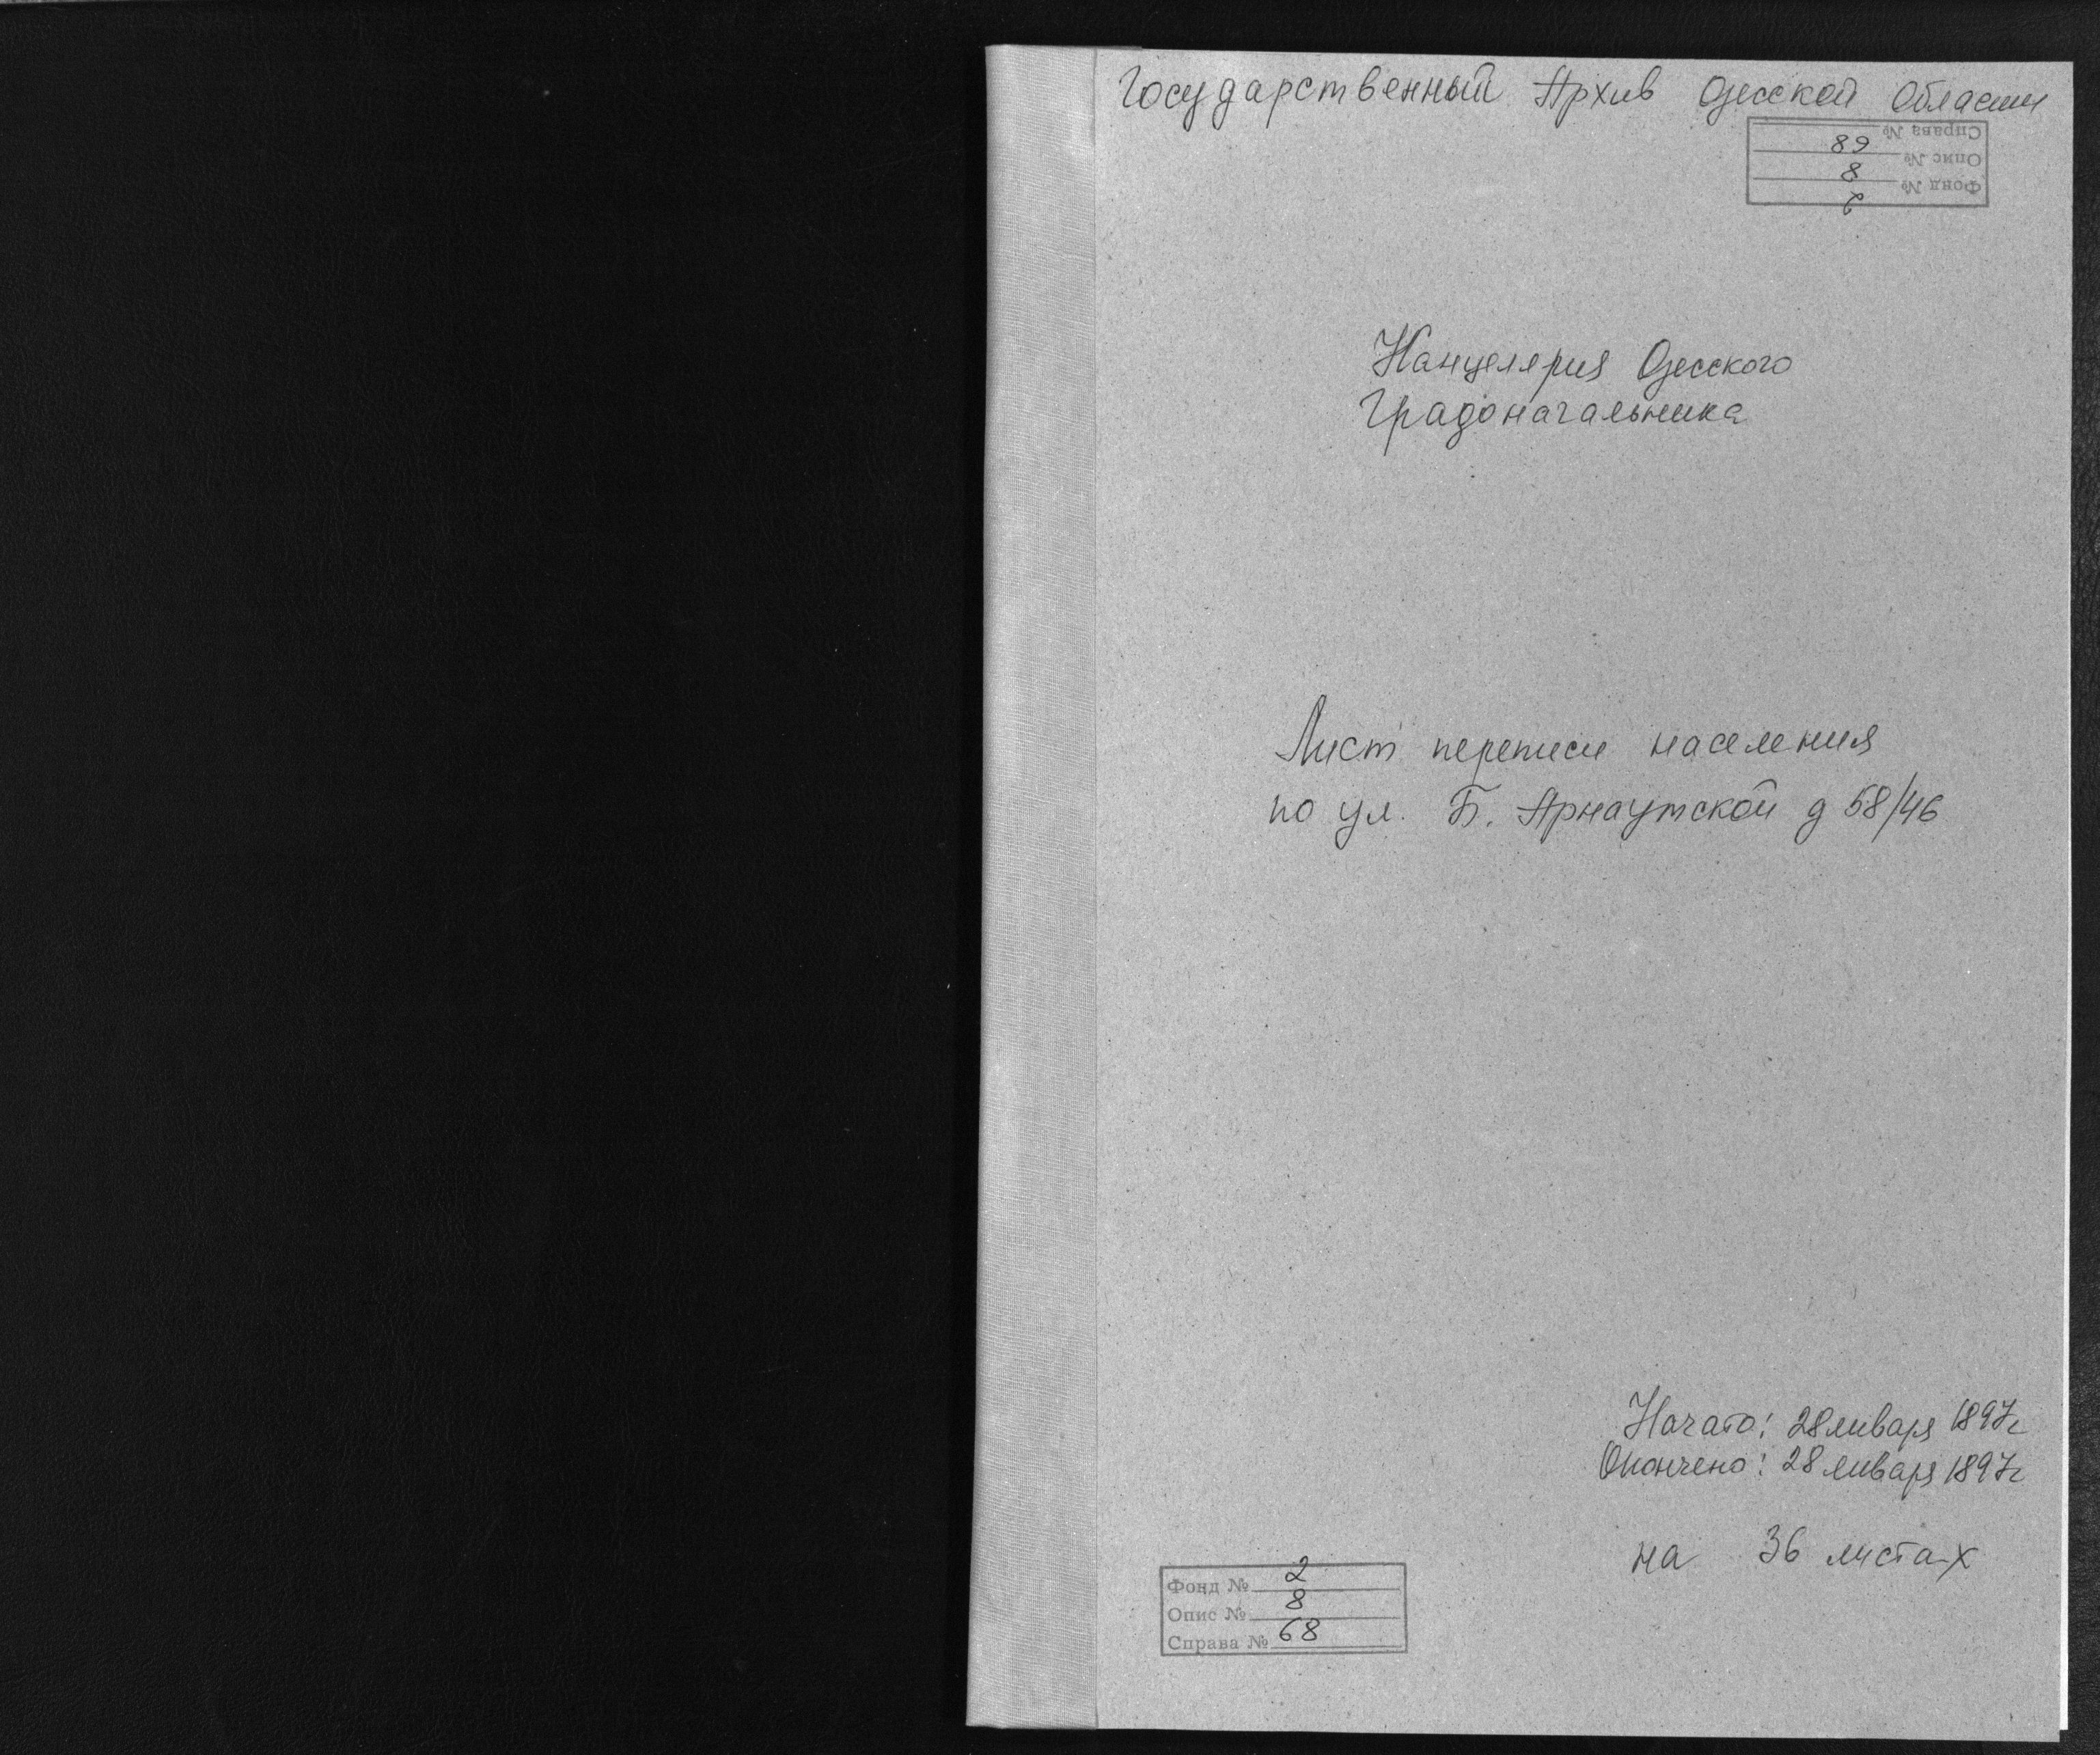 Государственный Архив Одесской Области
Справа № 68
Опис № 8
Фонд № 2
Канцелярия Одесского
Градоначальника
Лист переписи населения
по ул. Б. Арнаутской д 58/46
Начато: 28 января 1897г
Окончено: 28 января 1897г
на 36 листа-х
Фонд № 2
Опис № 8
Справа № 68